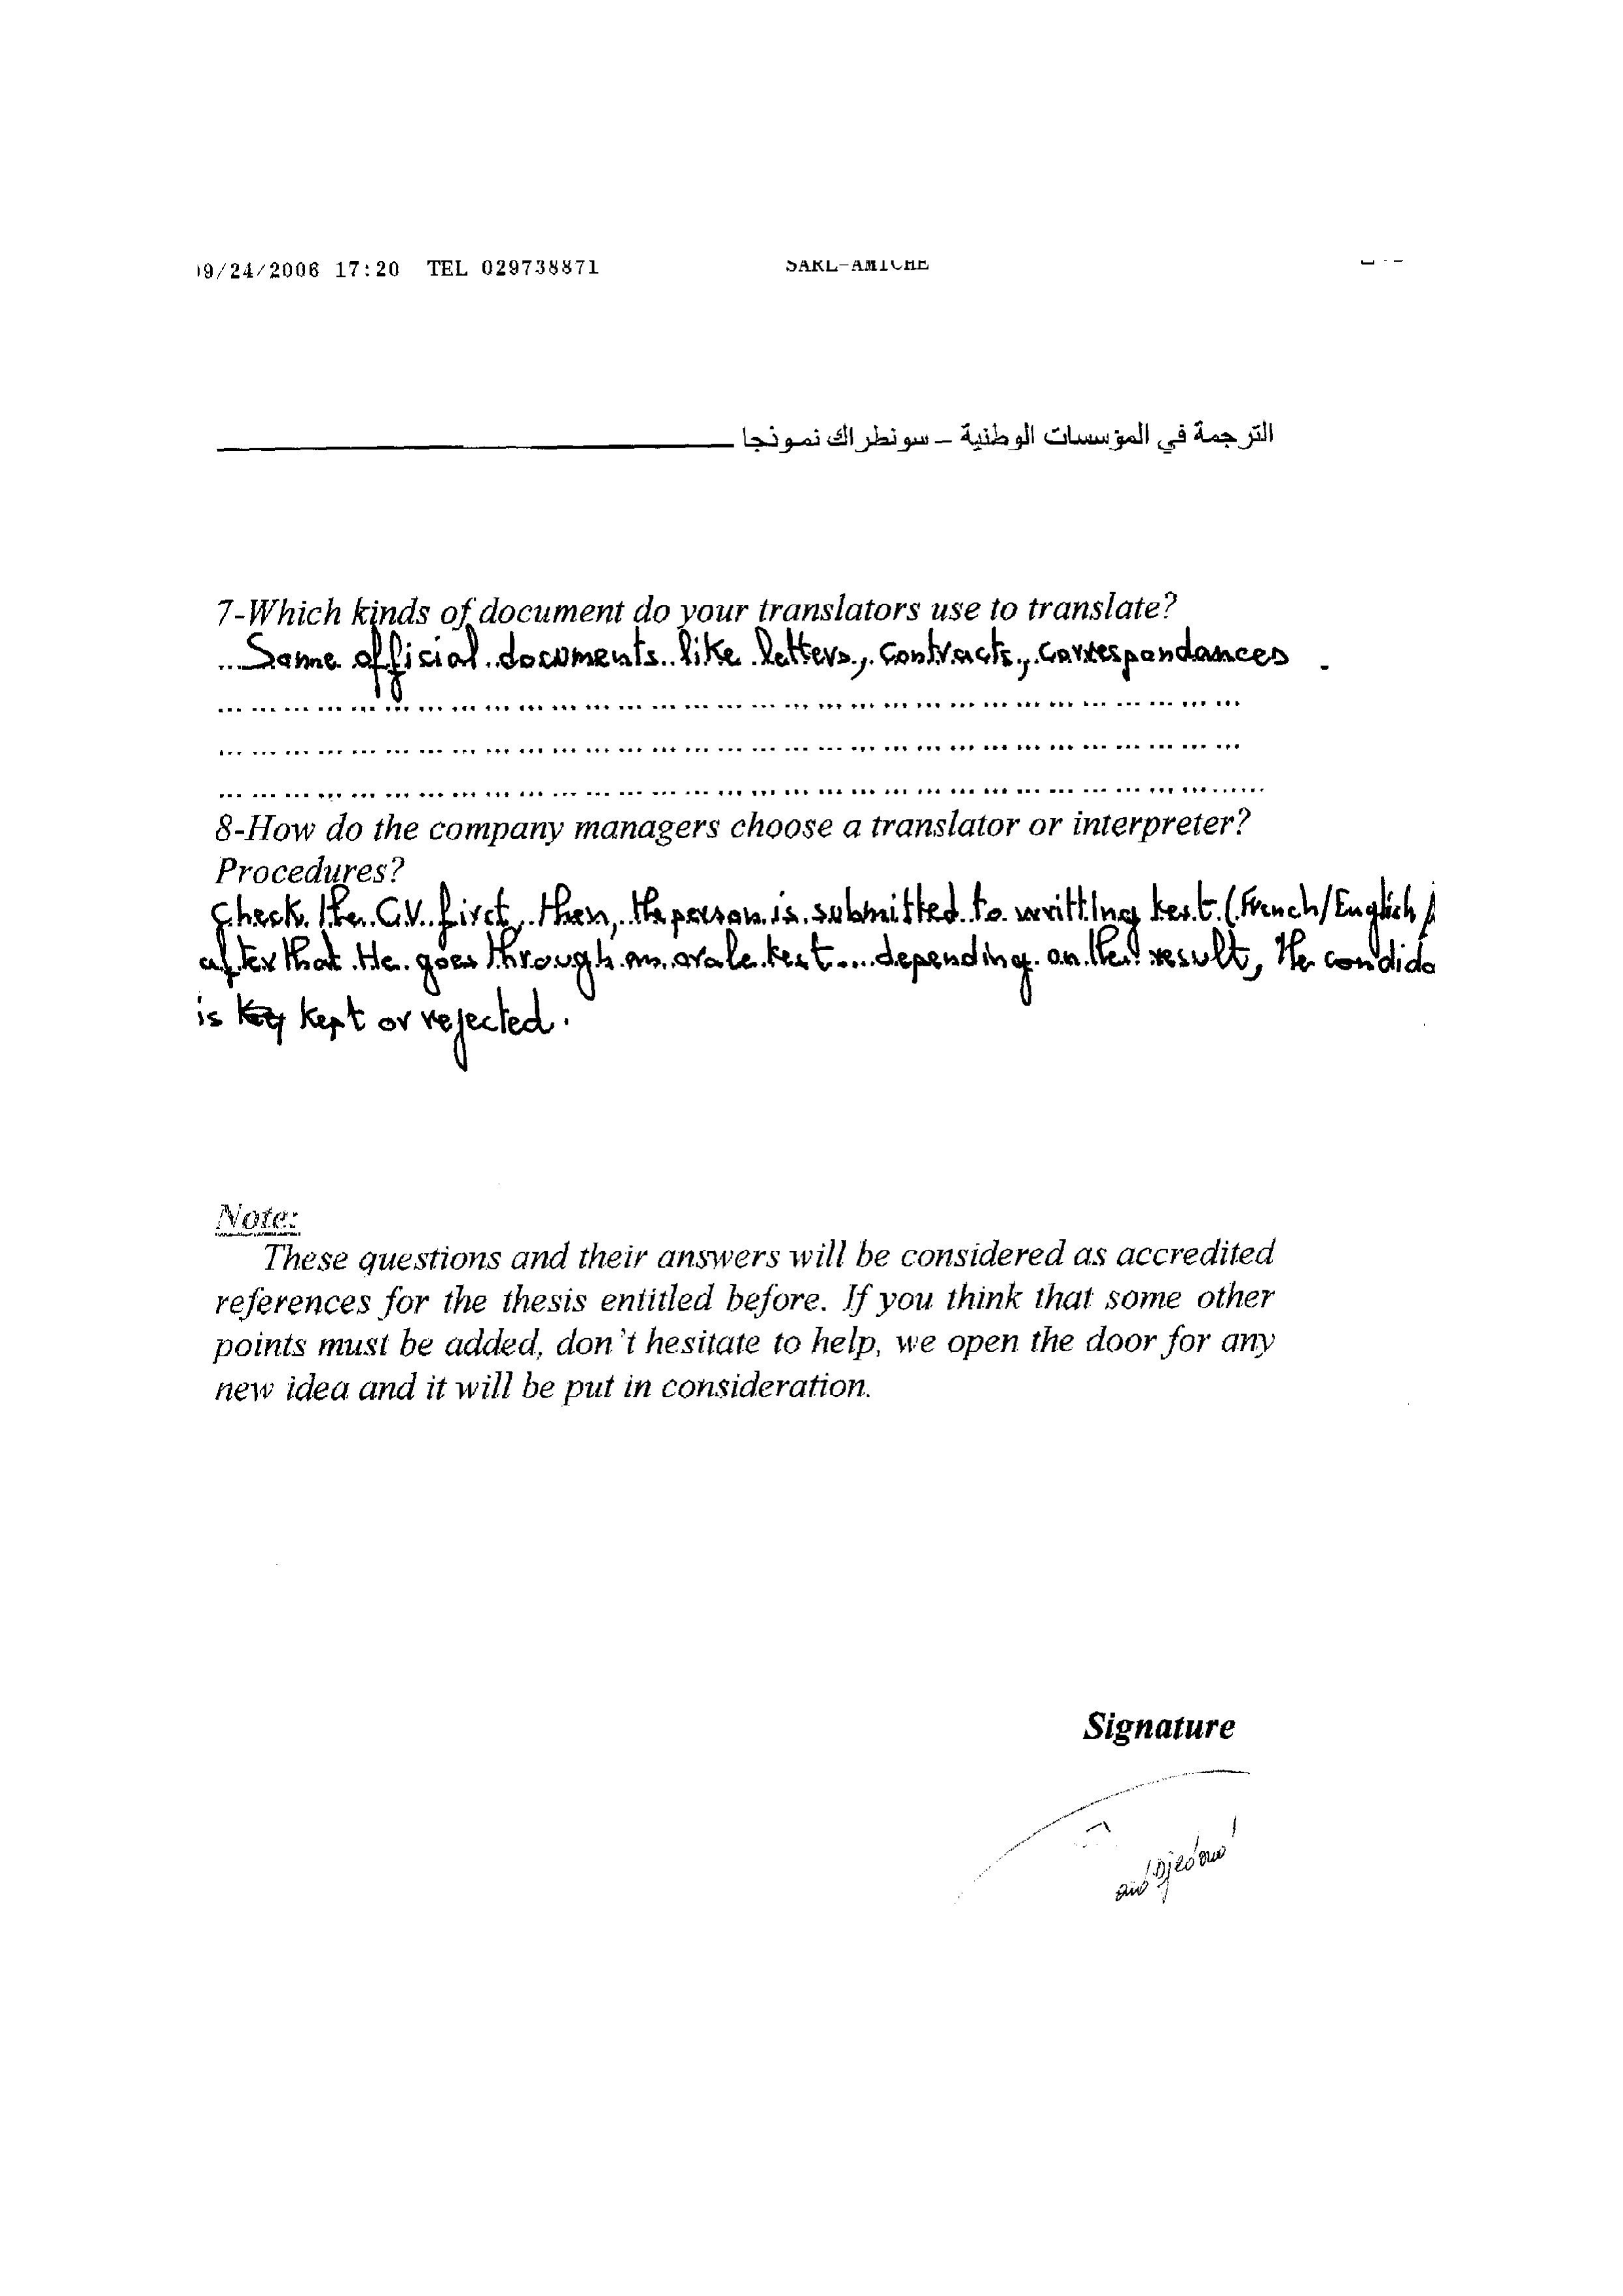 9/24/2006 17:20 TEL 029738871 SARL-AMICHE
الترجمة في المؤسسات الوطنية – سونطراك نموذجا
7-Which kinds of document do your translators use to translate?
...Some official documents like letters, contracts, correspondances .
8-How do the company managers choose a translator or interpreter?
Procedures?
Check the C.V. first, then, the person is submitted to writting test (French/English
after that He goes through an orale test.... depending on the result, the condida
is kept or rejected.
Note:
These questions and their answers will be considered as accredited
references for the thesis entitled before. If you think that some other
points must be added, don't hesitate to help, we open the door for any
new idea and it will be put in consideration.
Signature